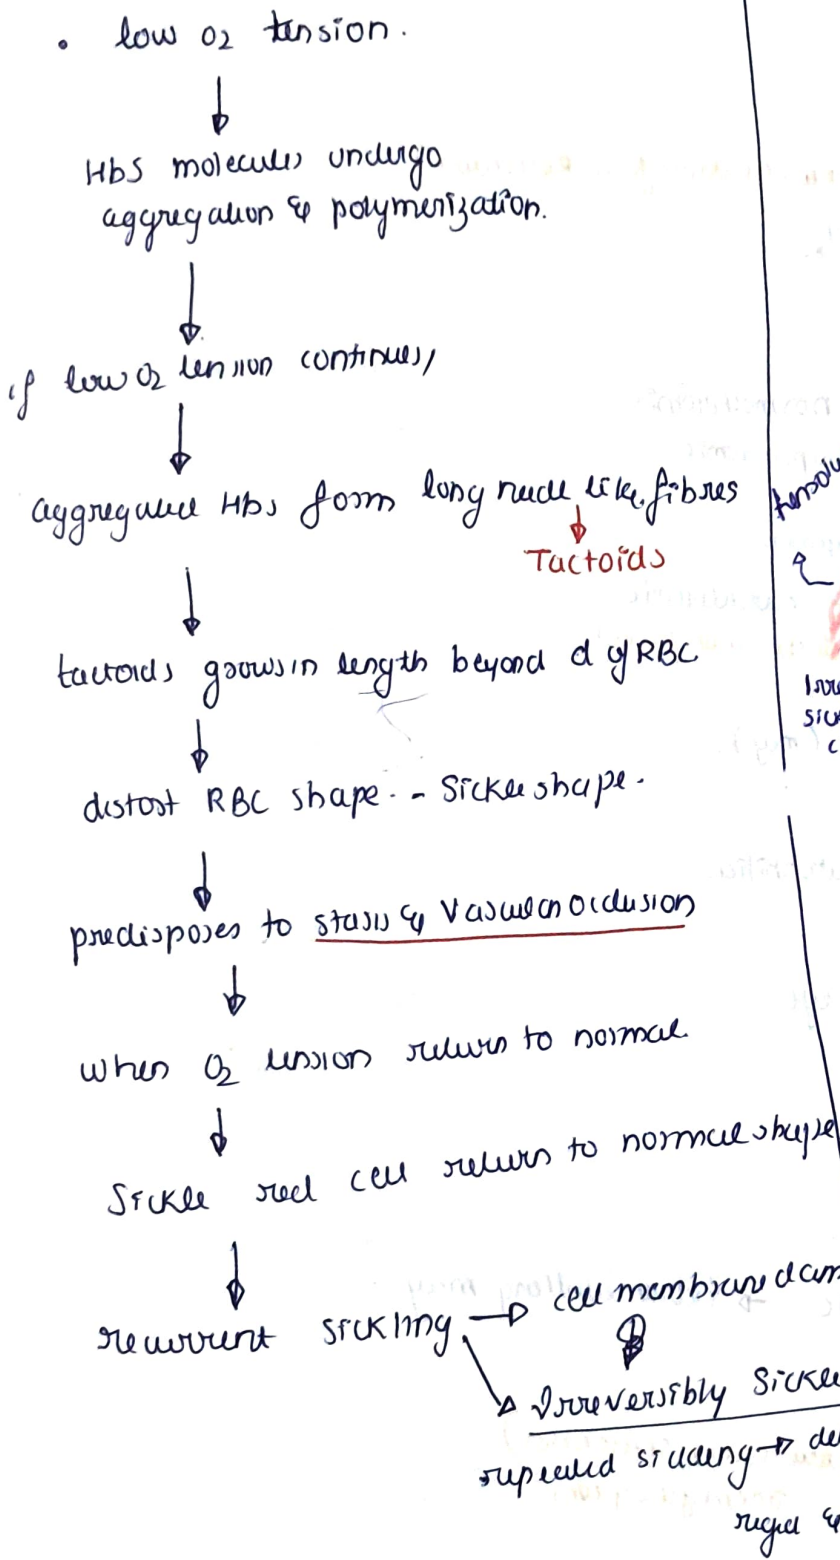 • low O2 tension.
HbS molecules undergo
aggregation & polymerization.
if low O2 tension continues,
aggregated Hbs form long needle like fibres
Tactoids
tactoids grows in length beyond d of RBC
distort RBC shape - Sickle shape.
predisposes to stasis & Vascular occlusion
when O2 tension return to normal
Sickle red cell return to normal shape
recurrent sickling → cell membrane dam
Irreversibly Sickle
repeated sickling → de
rigid &